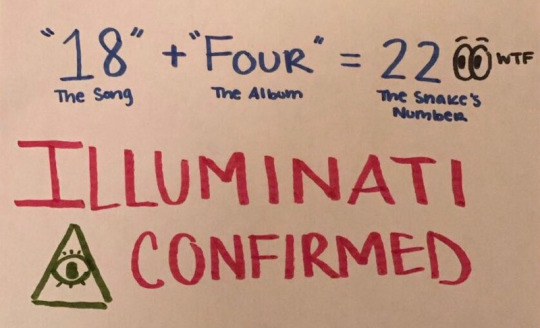 "18" + "FOUR" = 22 WTF
The Song The Album The Snake's Number
ILLUMINATI
CONFIRMED